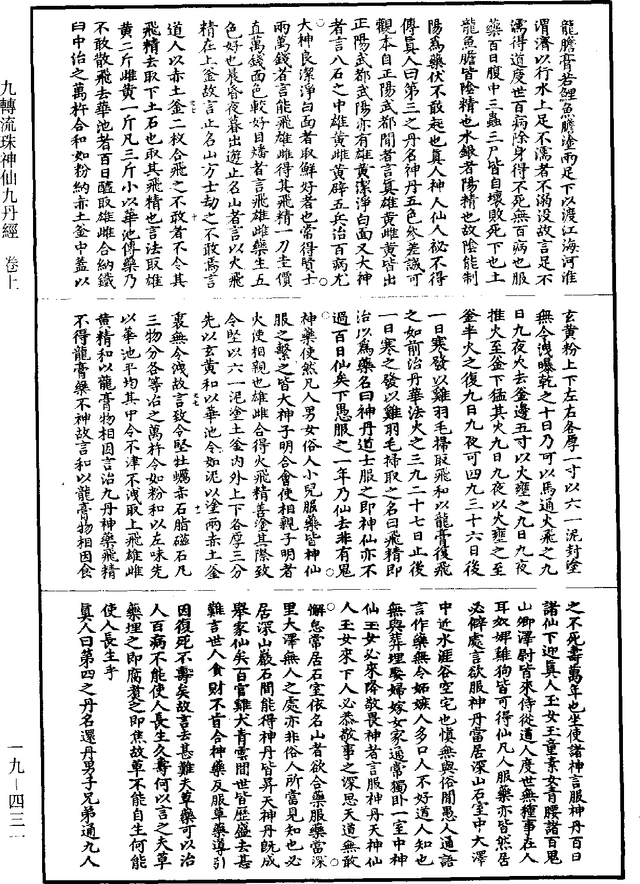 龍膽膏若鯉魚膽塗兩足下以渡江海河淮
渭濟以行水上足不濡者不溺没故言足不
濡得道度世百病除身得不死無百病也服
藥百日腹中三蟲三尸皆自壞敗死下也土
龍魚膽皆陰精也水銀者陽精也故陰能制
陽為藥伏不敢起也真人神人仙人祕不得
傳真人曰第三之丹名神丹五色參差識可
觀本自正陽武都間者言真雄黄雌黄皆出
正陽武都武陽亦有雄黄潔淨白面又大神
者言八石之中雄黄雌黄辟五兵治百病尤
大神良潔淨白面者取鮮好者也當得賢士
兩萬錢者言能飛雄雌得其飛精一刀圭價
直萬錢面色較好目燔者言飛雄雌藥生五
色好也晨昏夜暮出遊止名山者言以火飛
精在上釜故言止名山方士劫之不敢焉言
道人以赤土釜二枚合飛之不敢者不令其
飛精去取下土石也取其飛精也言法取雄
黄二斤雌黄一斤凡三斤小以華池傳藥乃
不敢散飛去華池者百日醯取雄雌合納鐵
臼中治之萬杵合和如粉納赤土釜中蓋以
玄黄粉上下左右各厚一寸以六一泥封塗
無令洩曝乾之十日乃可以馬通火飛之九
日九夜火去釜邊五寸以火壅之九日九夜
推火至釜下猛其火九日九夜以火壅之至
釜半火之復九日九夜可四九三十六日後
一日寒發以雞羽毛掃取飛和以龍膏復飛
之如前治丹華法火之三九二十七日止後
一日寒之發以雞羽毛掃取之名曰飛精即
治以為藥名曰神丹道士服之即神仙亦不
過百日仙矣下愚服之一年乃仙去非有鬼
神藥使然凡人男女俗人小兒服藥皆神仙
服之繫之皆大神子明合會使相親子明者
火使相親也雄雌合得火飛精善塗其際致
令堅以六一泥塗土釜内外上下各厚三分
先以玄黄和以華池令如泥以塗兩赤土釜
裏無令洩故言致令堅牡蠣赤石脂磁石凡
三物分各等冶之萬杵令如粉和以左味先
以華池平均其中令不津不洩取上飛雄雌
黄精和以龍膏物相因言治九丹神藥飛精
不得龍膏藥不神故言和以龍膏物相因食
之不死壽萬年也坐使諸神言服神丹百日
諸仙下迎真人玉女玉童素女青腰諸百鬼
山卿澤尉皆來侍從道人度世無種事在人
耳奴婢雞狗皆可得仙凡人服藥亦皆然居
必僻處言欲服神丹當居深山石室中大澤
中近水涯谷空宅也慎無與俗間愚人通語
言作藥無令妬嫉人多口人不好道人知也
無與葬埋娶婦嫁女家通常獨卧一室中神
仙玉女必來降敬畏神者言服神丹天神仙
人玉女來下人必恭敬事之深思天道無敢
懈怠常居石室依名山者欲合藥服藥當深
里大澤無人之處亦非俗人所當見知也必
居深山巖石間能得神丹皆昇天神丹既成
舉家仙矣百官雞犬青雲間世皆歷盛去甚
難言世人貪財不肯合神藥反服草藥導引
因復死不壽矣故言去甚難夫草藥可以治
人百病不能使人長生久壽何以言之夫草
藥埋之即腐煮之即焦故草不能自生何能
使人長生乎
真人曰第四之丹名還丹男子兄弟通九人
九轉流珠神仙九丹經 卷上
一九－四三一